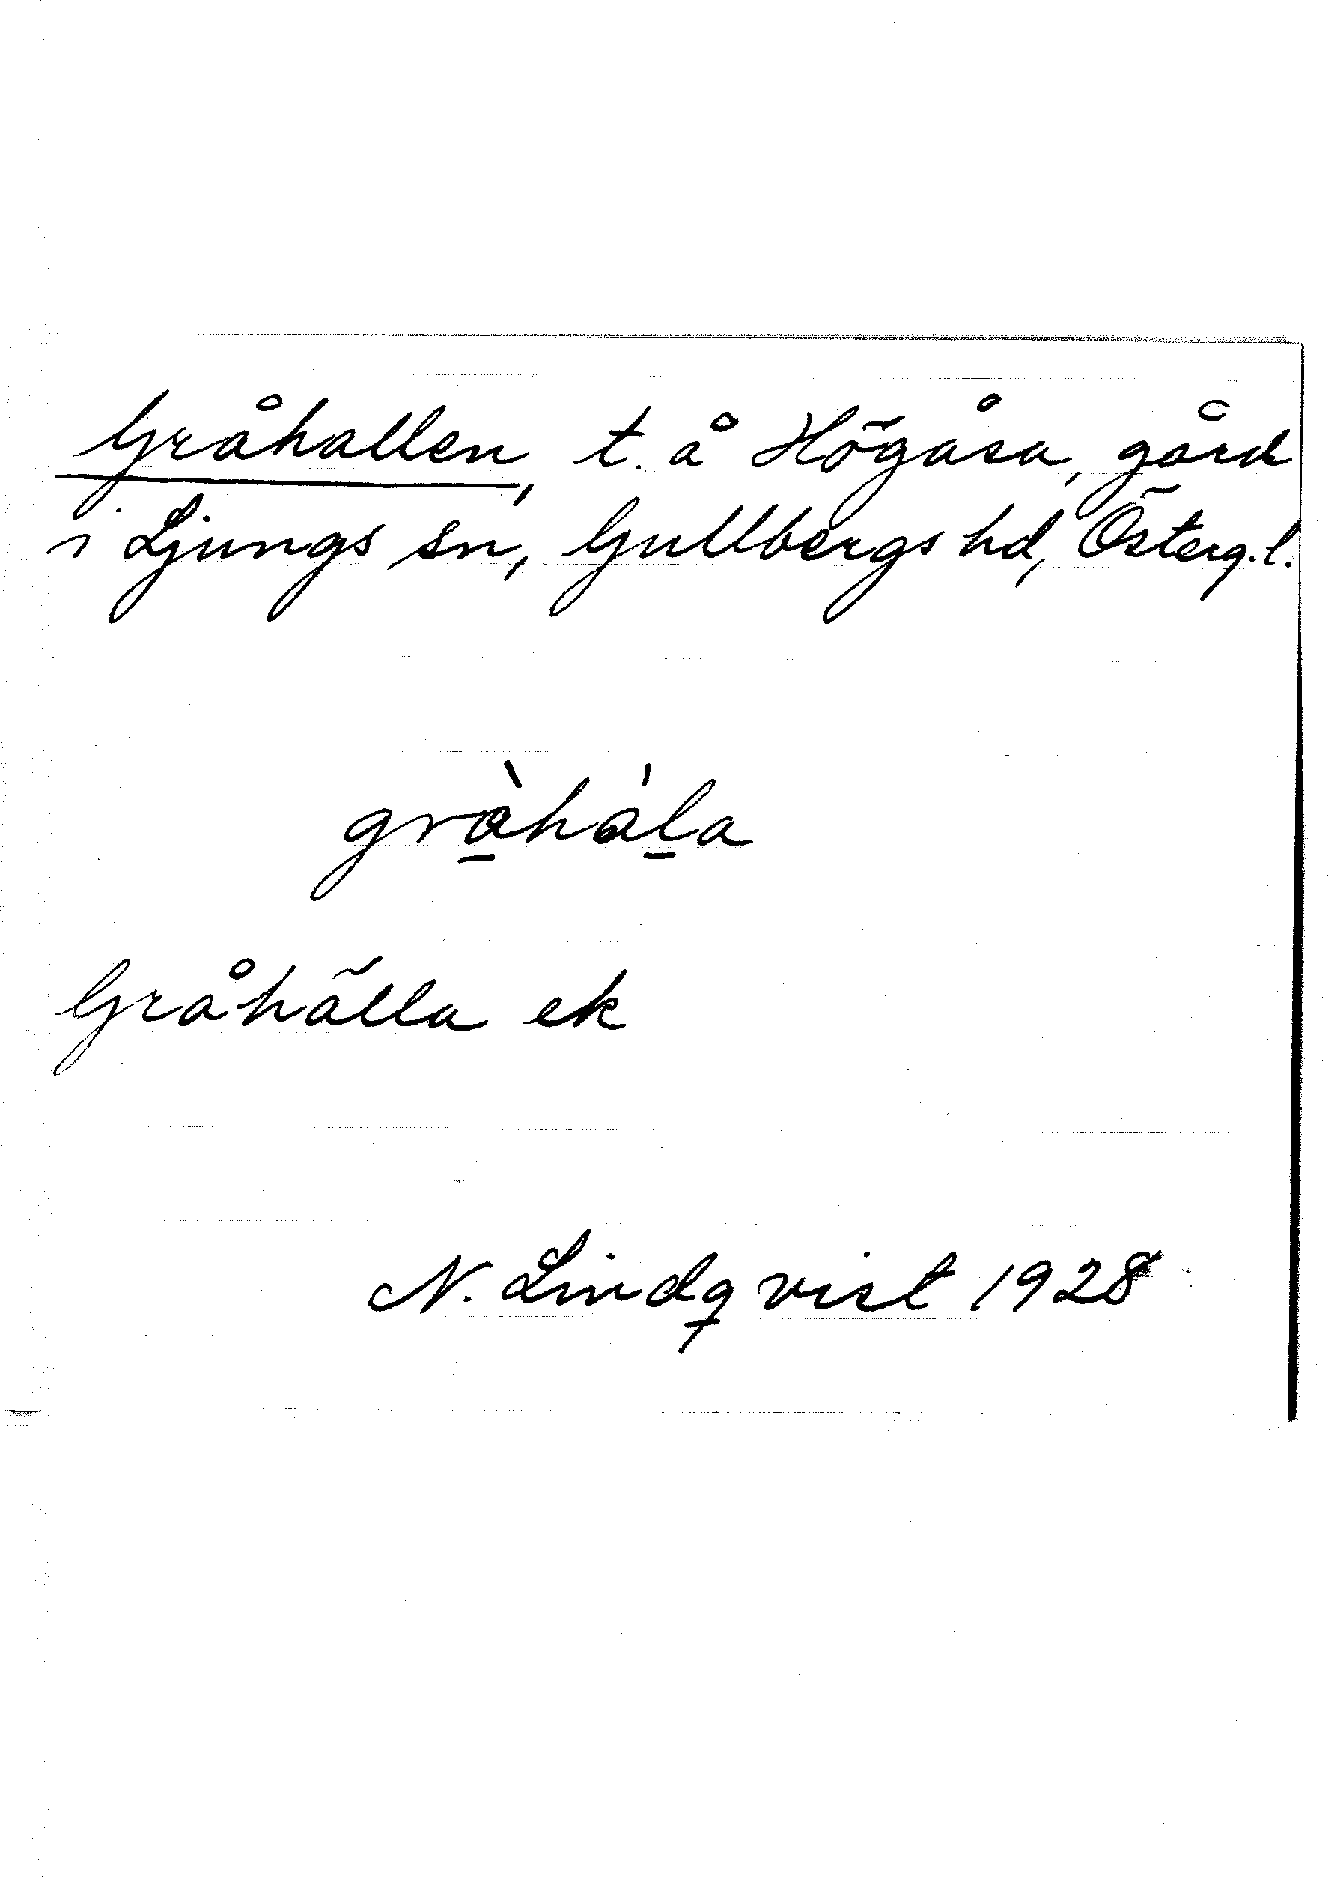 Gråhallen, t. å Högåsa, gård
i Ljungs sn, Gullbergs hd, Österg. l.
gràhàla
Gråhälla ek
N. Lindqvist 1928